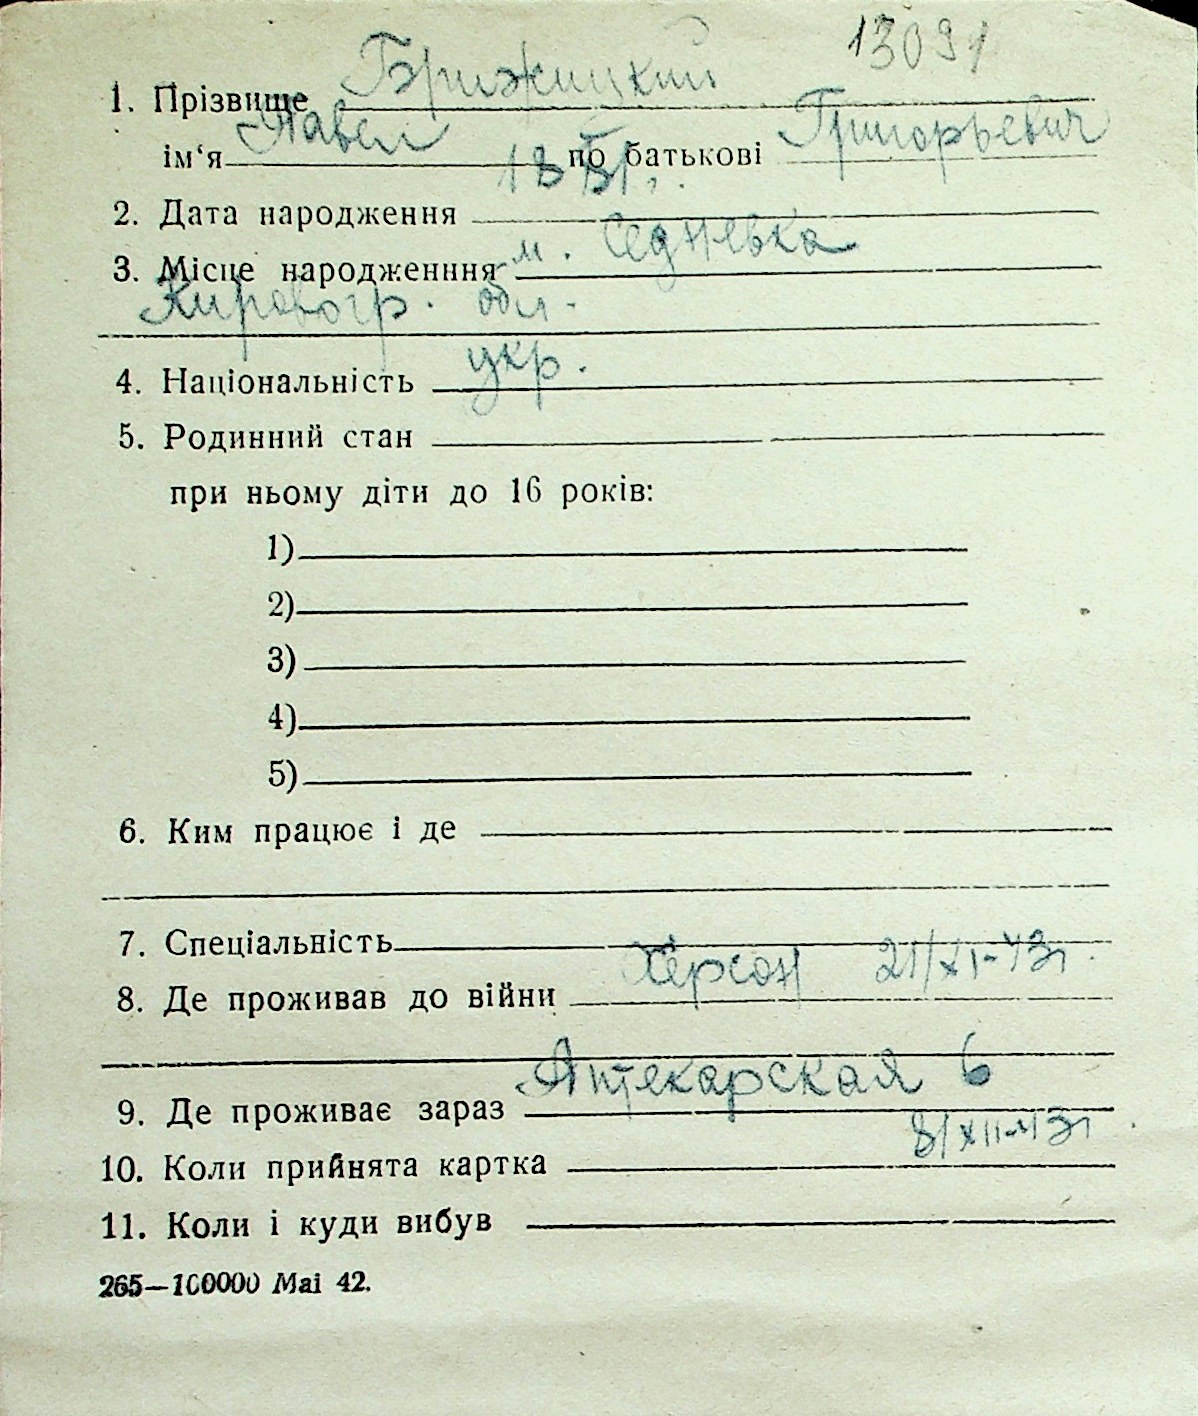 13091
1. Прізвище Брижицкий
ім‘я Павел по батькові Григорьевич
2. Дата народження
3. Місце народженння м. Седневка
Кировогр. обл.
4. Національність укр.
5. Родинний стан
при ньому діти до 16 років:
1)
2)
3)
4)
5)
6. Ким працює і де
7. Спеціальність
8. Де проживав до війни Херсон 21/XI-43г.
9. Де проживає зараз Аптекарская 6
10. Коли прийнята картка 8/XII-43г.
11. Коли і куди вибув
265—100000 Mai 42.